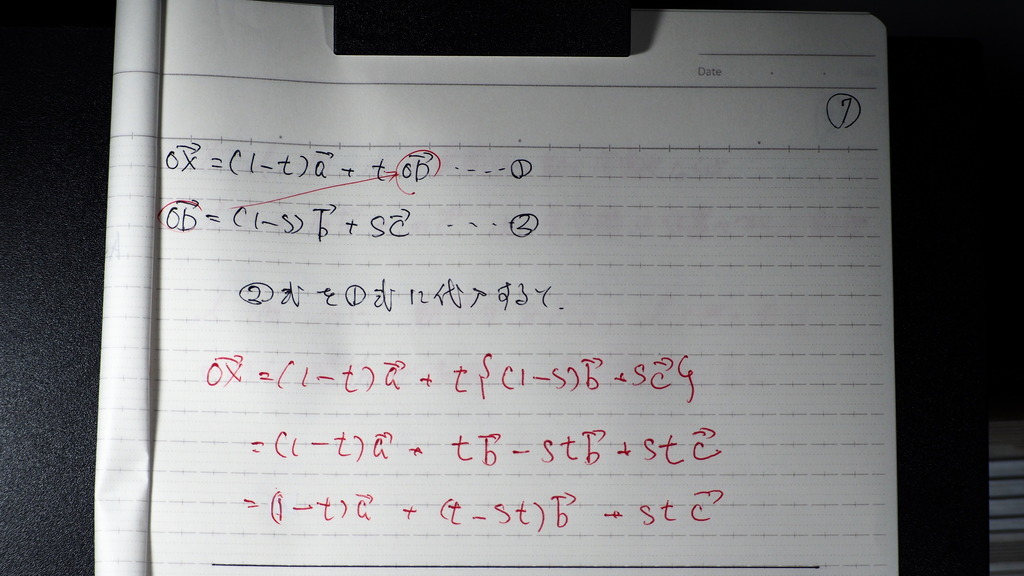 Date
⑦
OX⃗ = (1-t)a⃗ + tOD⃗ ----①
OD⃗ = (1-s)b⃗ + sc⃗ ---②
②式を①式に代入すると.
OX⃗ = (1-t)a⃗ + t{(1-s)b⃗ + sc⃗}
= (1-t)a⃗ + tb⃗ - stb⃗ + stc⃗
= (1-t)a⃗ + (t-st)b⃗ + stc⃗